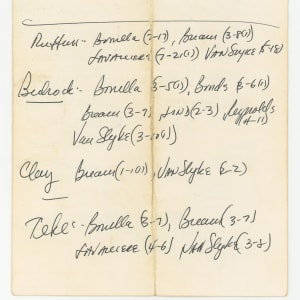 Ruffin:- Bonilla (7-17), Bream (3-8(1)
LAVALLIERE (7-21(1)) VAN SLYKE (5-18)
Bedrock:- Bonilla (3-5(1)), Bonds (5-6(1))
Bream (3-7) LIND (2-3) Reynolds
4-11)
Van Slyke (3-10(1))
Clay Bream (1-1(1)), VAN SLYKE (2-2)
Zeke:- Bonilla (3-7), Bream (3-7)
LAVALLIERE (4-6) VAN SLYKE (3-8)